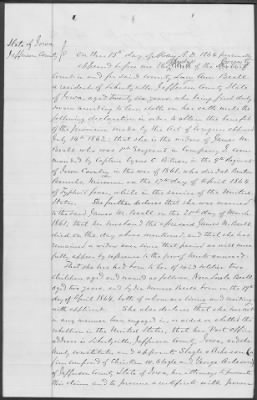 State of Iowa
Jefferson County } On this 13th day of May A.D. 1864 personally
appeared before me Clerk of the
Court in and for said County Lucy Ann Beall
a resident of Libertyville, Jefferson County State of
Iowa, aged twenty six years, who being first duly
sworn according to law, doth on her oath make the
following declaration in order to obtain the benefit
of the provision made by the Act of Congress approved
July 14th 1862; that she is the widow of James M.
Beall who was 1st Sergeant in Company I, com-
manded by Captain in the 3rd Regiment
of Iowa Cavalry in the war of 1861, who died
Missouri on the day of April 1864
of Typhoid fever, while in the service of the United
States. She further declares that she was married
to the said James M. Beall on the 20th day of March
1861; that her husband the aforesaid James M. Beall
died on the day above mentioned, and that she has
remained a widow ever since that period as will more
fully appear by reference to the proof hereto annexed.
That she has had born to her of said wedlock two
children aged and named as follows, Beall
aged two years, and Beall born on the 19th
day of April 1864, both of whom are living and residing
with applicant. She also declares that she has not
in any manner been engaged in or aided or abetted the
rebellion in the United States, that her Post Office
address is Libertyville, Jefferson County Iowa, and she
hereby constitutes and appoints Slagle & Acheson (a
firm composed of Christian W. Slagle and George Acheson)
of Jefferson County State of Iowa her attorneys to present
this claim and to procure a certificate with power